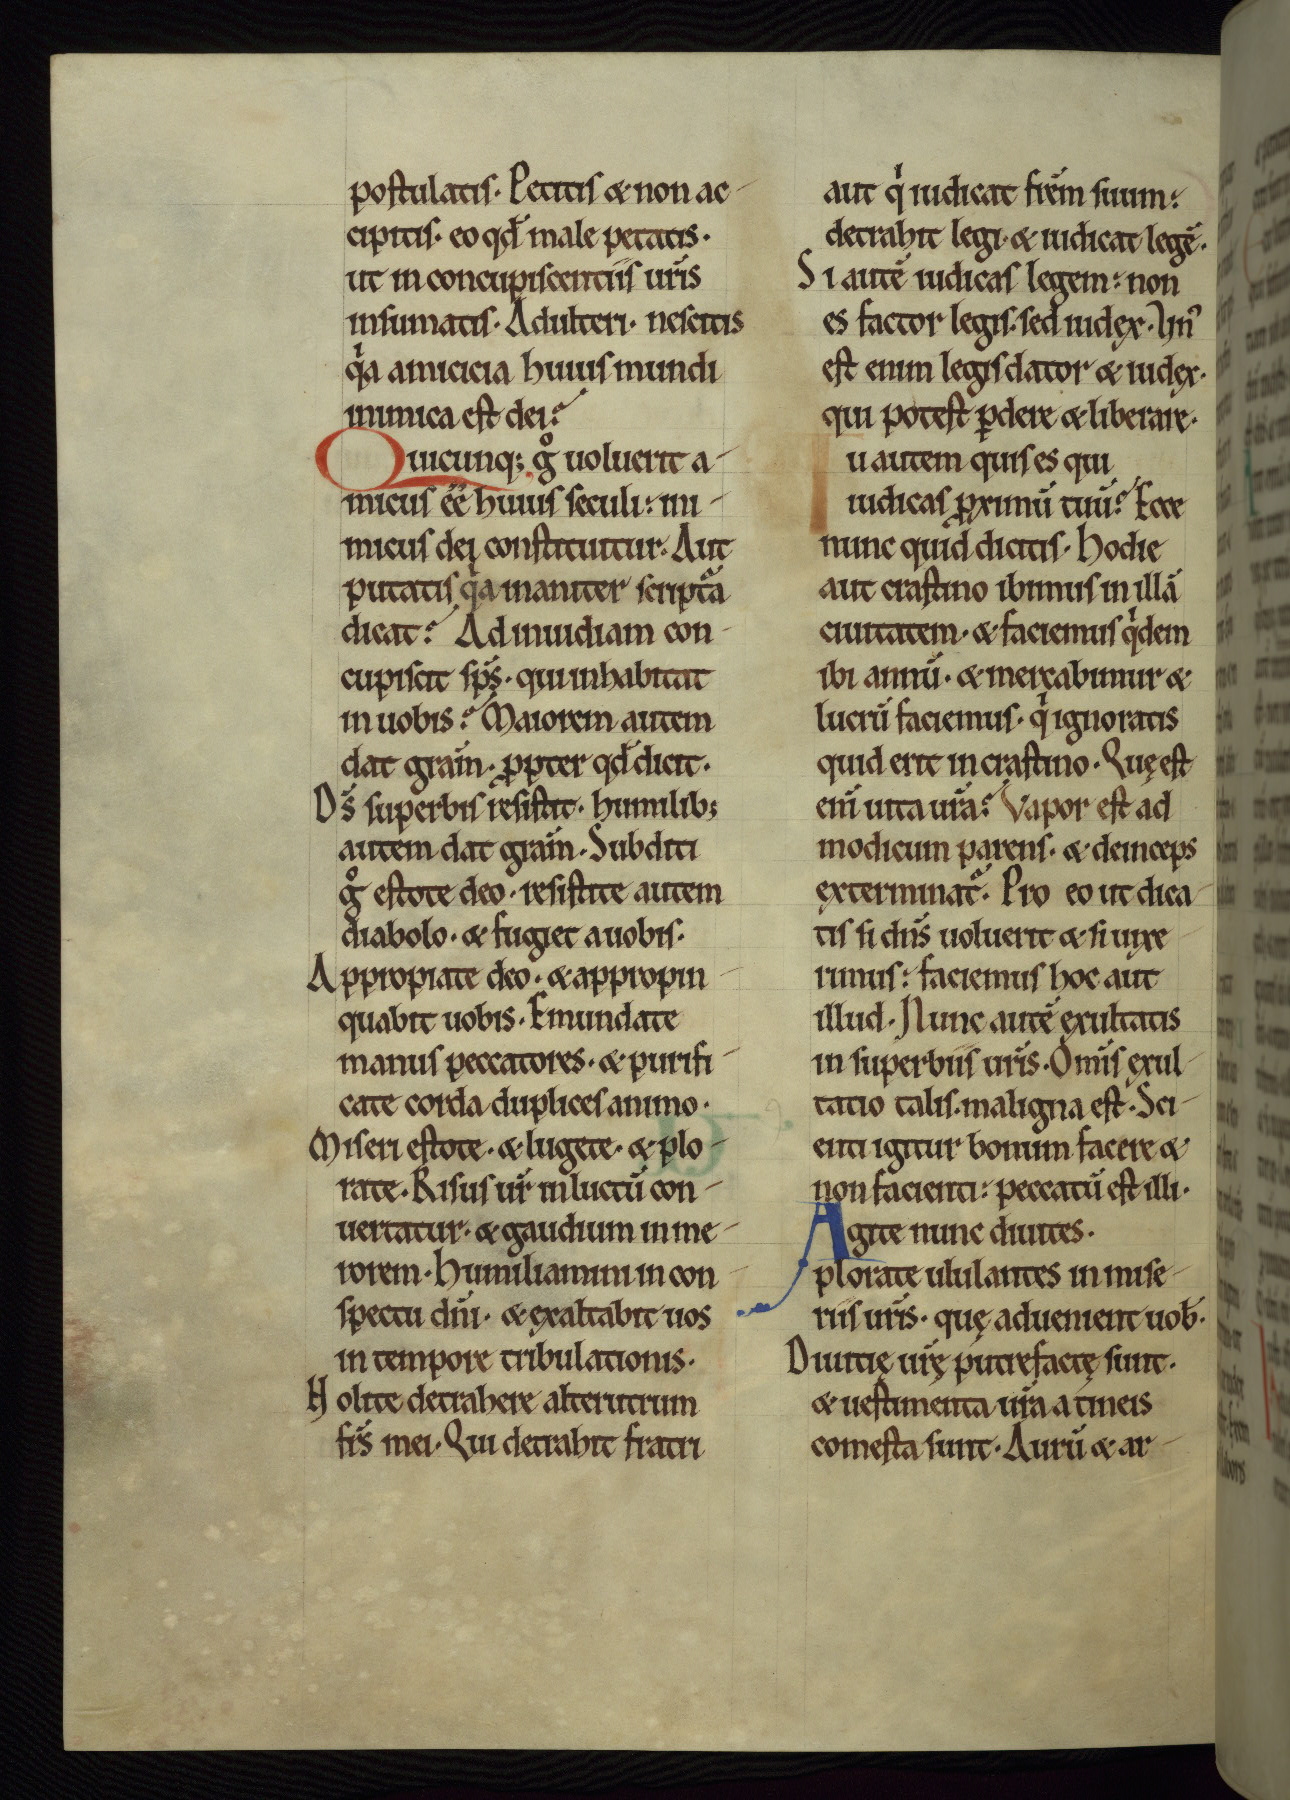 postulatis. Petitis & non ac-
cipitis. eo qd̄ male petatis.
ut in concupiscentiis ur̄is
insumatis. Adulteri. nescitis
qͥa amicicia huius mundi
inimica est dei?
Quicunq; gͦ uoluerit a-
micus ēē huius seculi: ini-
micus dei constituitur. Aut
putatis qͥa inaniter scriptᷓa
dicat? Ad inuidiam con-
cupiscit sp̄s. qui inhabitat
in uobis? Maiorem autem
dat gr̄am. ꝓpter qd̄ dicit.
Ds̄ superbis resistit. humilib;
autem dat gr̄am. Subditi
gͦ estote deo. resistite autem
diabolo. & fugiet a uobis.
Appropiate deo. & appropin-
quabit uobis. Emundate
manus peccatores. & purifi-
cate corda duplices animo.
Miseri estote. & lugete. & plo-
rate. Risus ur̄ in luctū con-
uertatur. & gaudium in me-
rorem. Humiliamini in con-
spectu dn̄i. & exaltabit uos
in tempore tribulationis.
Nolite detrahere alterutrum
fr̄s mei. Qui detrahit fratri
aut qͥ iudicat fr̄em suum:
detrahit legi. & iudicat legē.
Si autē iudicas legem: non
es factor legis. sed iudex. Un᷒
est enim legis dator & iudex.
qui potest ꝑdere & liberare.
Tu autem quis es qui
iudicas ꝓximū tuū? Ecce
nunc quid dicitis. Hodie
aut crastino ibimus in illā
ciuitatem. & faciemus qͥdem
ibi annū. & mercabimur &
lucrū faciemus. qͥ ignoratis
quid erit in crastino. Quę est
eni̅ uita ur̄a? Vapor est ad
modicum parens. & deinceps
exterminat᷒. Pro eo ut dica-
tis si dn̄s uoluerit & si uixe-
rimus: faciemus hoc aut
illud. Nunc autē exultatis
in superbiis ur̄is. Om̄is exul-
tatio talis. maligna est. Sci-
enti igitur bonum facere &
non facienti: peccatū est illi.
Agite nunc diuites.
plorate ululantes in mise-
riis ur̄is. quę aduenient uob̄.
Diuitię ur̄ę putrefactę sunt.
& uestimenta ur̄a a tineis
comesta sunt. Aurū & ar-